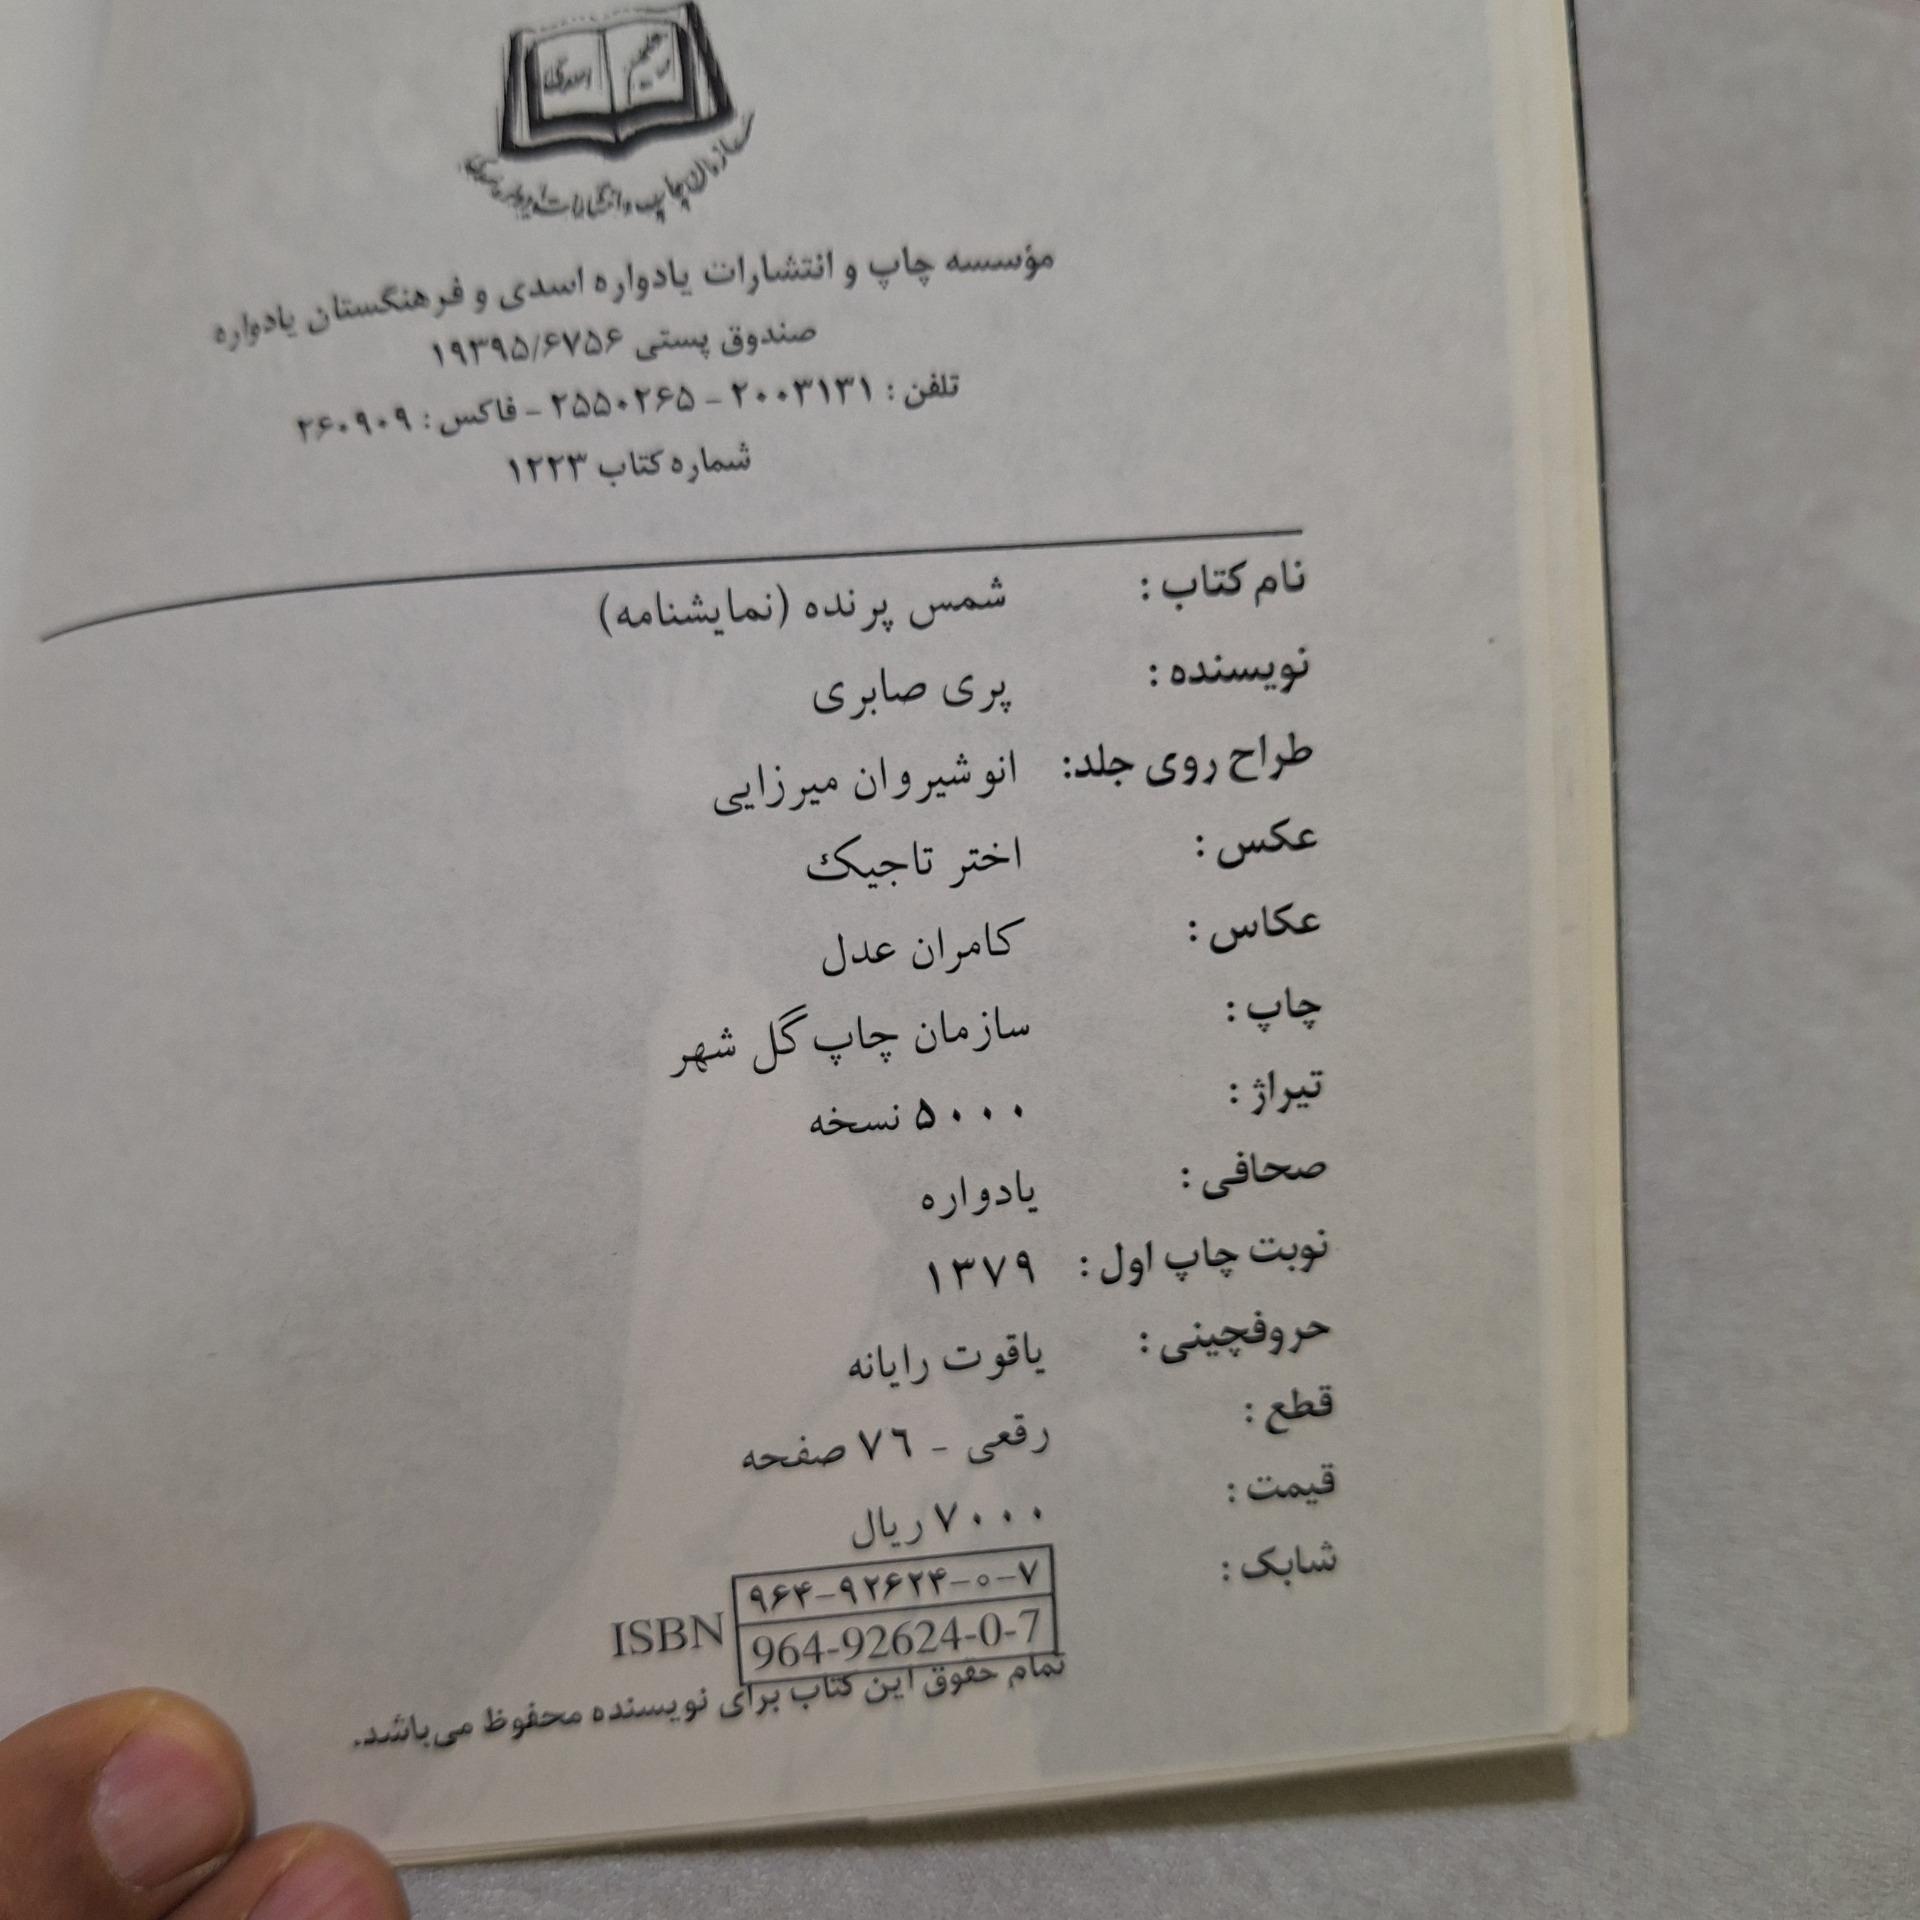 اسدی
سازمان چاپ و انتشارات
مؤسسه چاپ و انتشارات یادواره اسدی و فرهنگستان یادواره
صندوق پستی ۱۹۳۹۵/۶۷۵۶
تلفن : ۲۰۰۳۱۳۱ - ۲۵۵۰۲۶۵ - فاکس : ۲۶۰۹۰۹
شماره کتاب ۱۲۲۳
نام کتاب : شمس پرنده (نمایشنامه)
نویسنده : پری صابری
طراح روی جلد: انوشیروان میرزایی
عکس : اختر تاجیک
عکاس : کامران عدل
چاپ : سازمان چاپ گل شهر
تیراژ : ۵۰۰۰ نسخه
صحافی : یادواره
نوبت چاپ اول : ۱۳۷۹
حروفچینی : یاقوت رایانه
قطع : رقعی - ۷۶ صفحه
قیمت : ۷۰۰۰ ریال
شابک : ۹۶۴-۹۲۶۲۴-۰-۷
ISBN 964-92624-0-7
تمام حقوق این کتاب برای نویسنده محفوظ می‌باشد.